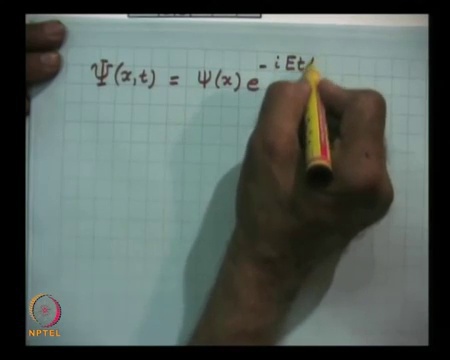 Ψ(x,t) = ψ(x) e^{-iEt/
NPTEL